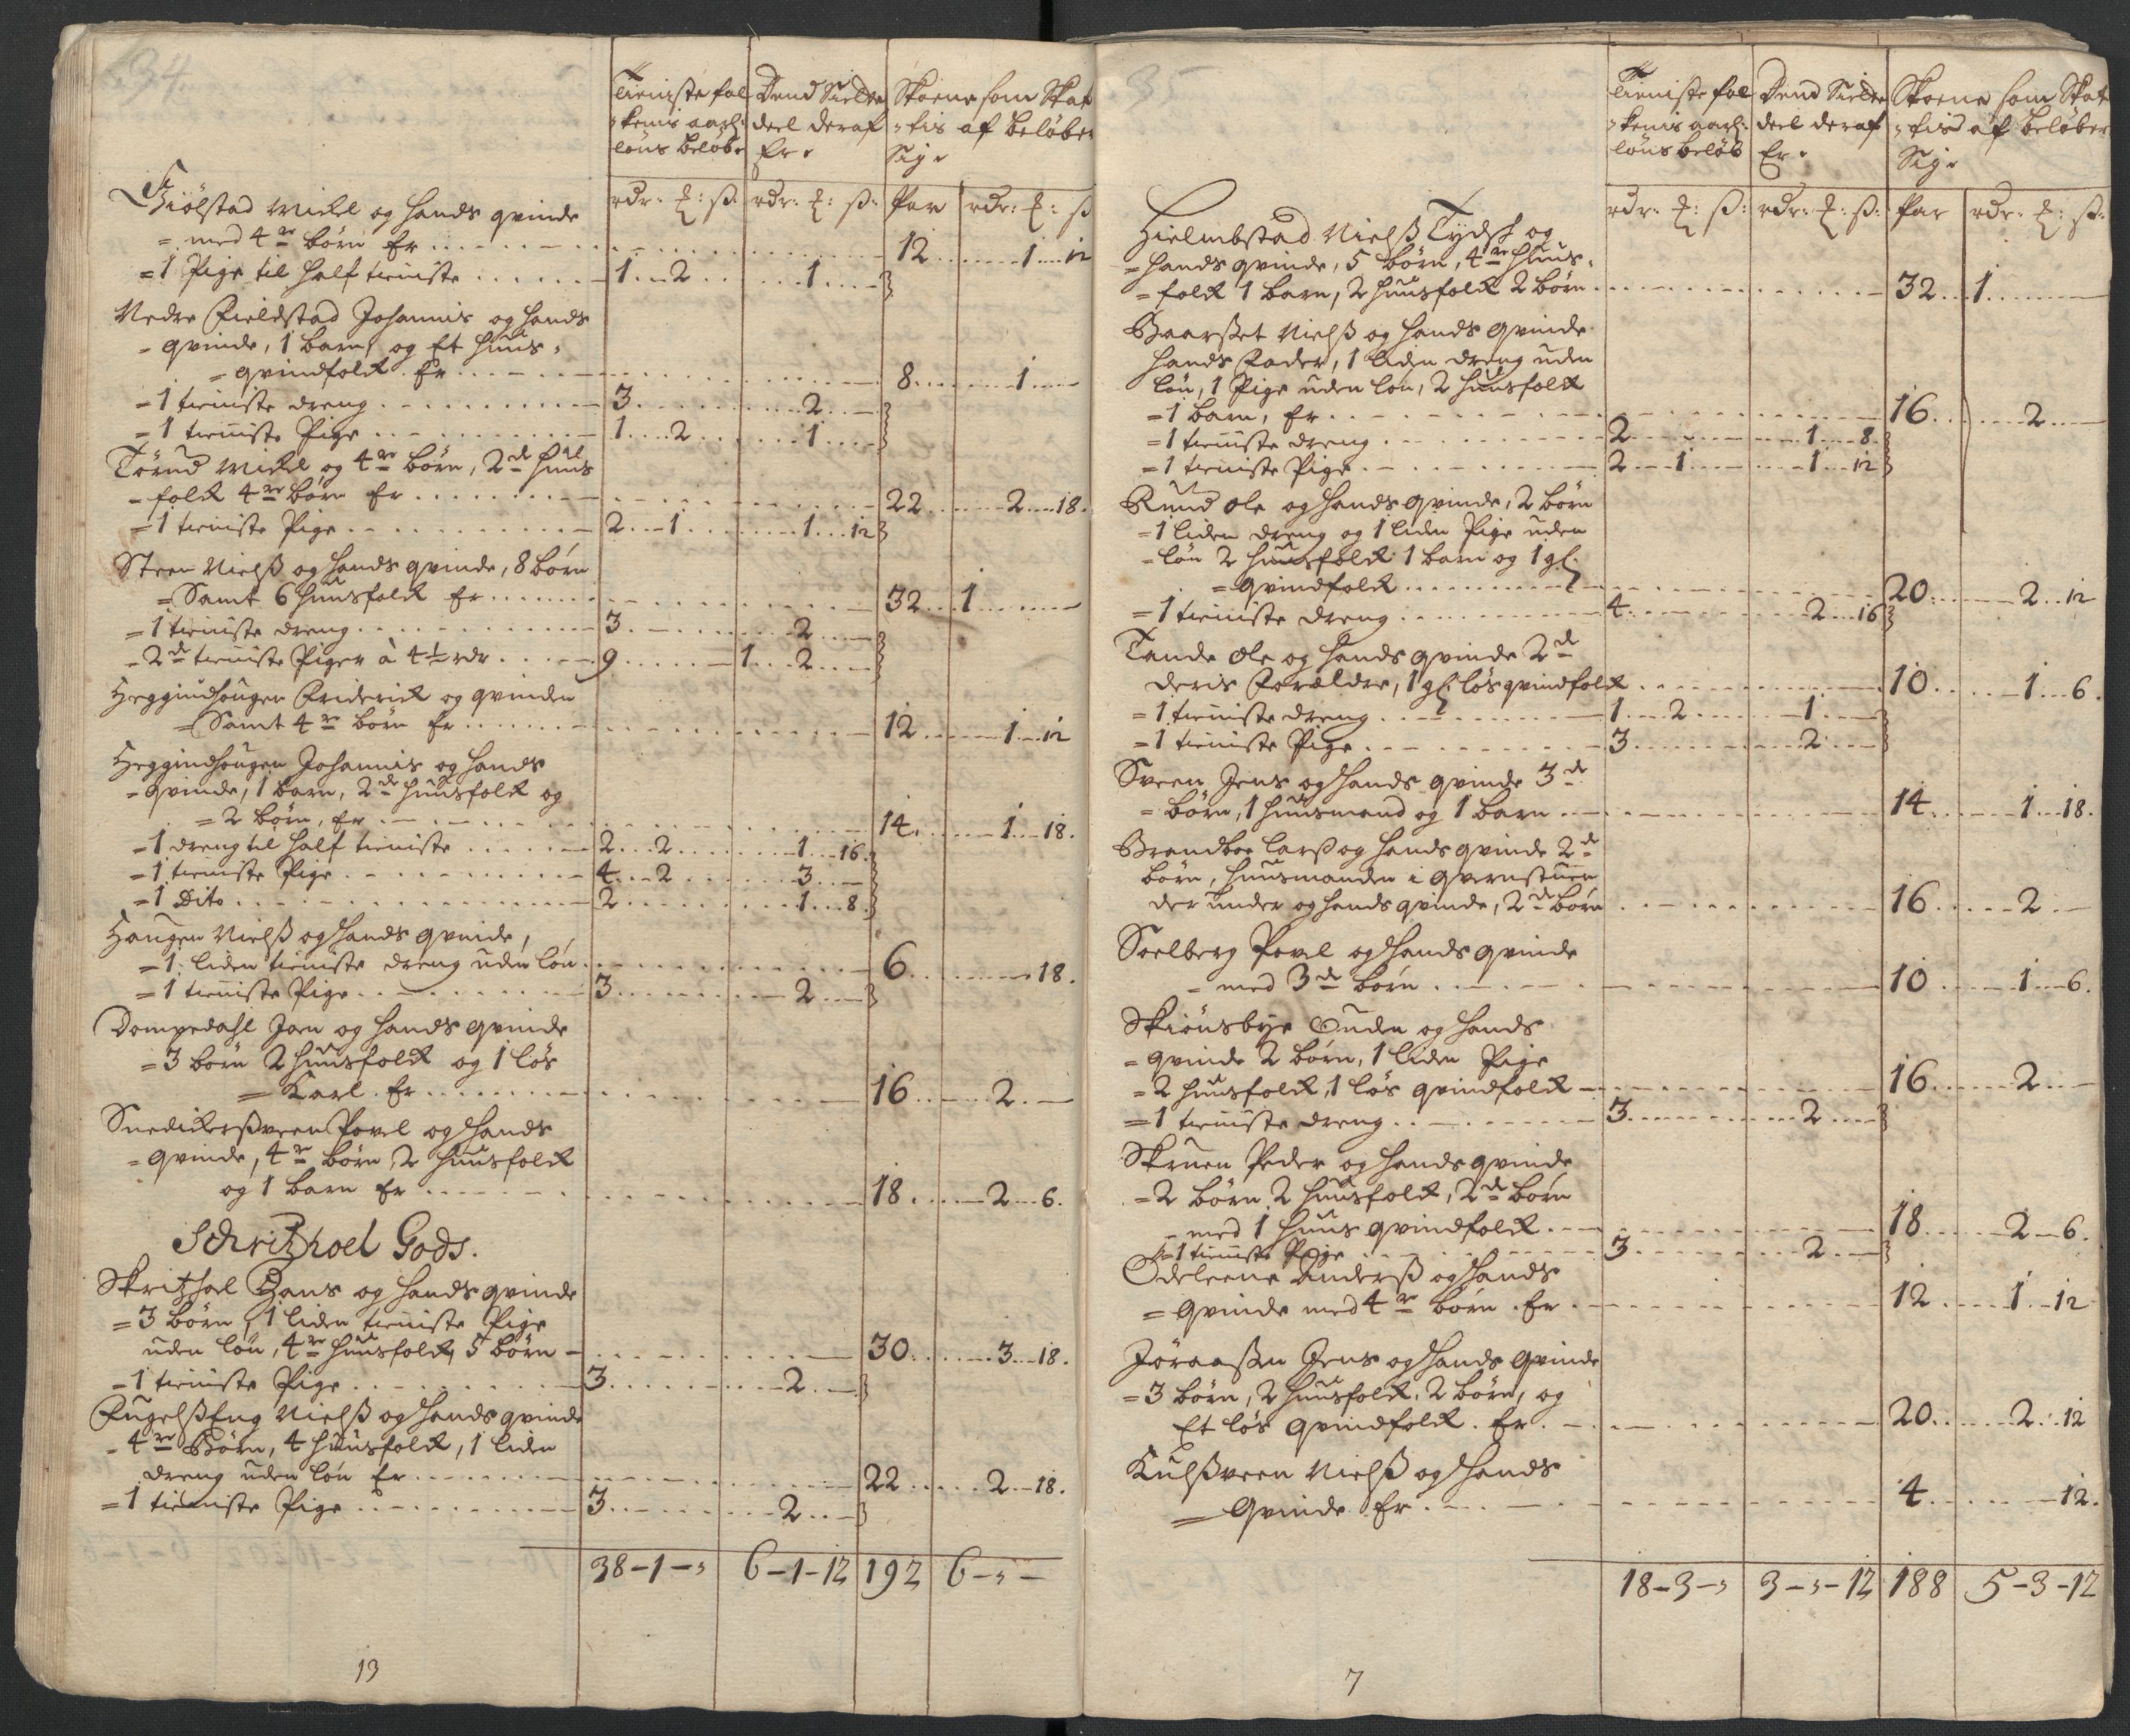 34.
Tieniste fol
kenis aarl:
løns beløb
Dend Siette
deel deraf
Er
Skoene som Skat
tis af beløber
Sig
rdr. ℔: ß. rdr. ℔: ß. Par rdr: ℔: ß
Giølstad Mickel og hands qvinde
= med 4re børn Er 12 1 12
=1 Pige til half tieniste 1 2 1
Nedre Fieldstad Johannis og hands
= qvinde, 1 barn, og Et huus=
= qvindfolk Er 8 1
=1 tieniste dreng 3 2
=1 tieniste Pige 1 2 1
Tørud Mickel og 4re børn, 2de huus
= folk 4re børn Er 22 2 18.
=1 tieniste Pige 2 1 1 12
Steen Nielß og hands qvinde, 8 børn
= Samt 6 huusfolk Er 32 1
=1 tieniste dreng 3 2
=2de tieniste Piger à 4½ rdr 9 1 2
Heggindhougen Friderick og qvinden
= Samt 4re børn Er 12 1 12
Heggindhougen Johannis og hands
= qvinde, 1 barn, 2de huusfolk og
= 2 børn, Er 14 1 18.
=1 dreng til half tieniste 2 2 1 16
=1 tieniste Pige 4 2 3
=1 Dito 2 1 8
Haugen Nielß og hands qvinde,
=1 liden tieniste dreng uden løn 6 18.
=1 tieniste Pige 3 2
Dompedahl Joen og hands qvinde
=3 børn 2 huusfolk og 1 løs
= Karl. Er 16 2
Snedickerßveen Povel og hands
= qvinde, 4re børn 2 huusfolk
og 1 barn Er 18 2 6.
Schritzhoel Gods.
Skritzhol Hans og hands qvinde
=3 børn, 1 liden tieniste Pige
uden løn, 4re huusfolk, 5 børn 30 3 18.
=1 tieniste Pige 3 2
FugelßEng Nielß og hands qvinde
=4re Børn, 4 huusfolk, 1 liden
dreng uden løn Er 22 2 18.
=1 tieniste Pige 3 2
38-1-" 6-1-12 192 6-"-
13
35
Tieniste fol
kenis aarl:
løns beløb
Dend Siette
deel deraf
Er
Skoene som Skat
tis af beløber
Sig
rdr. ℔: ß: rdr. ℔: ß: Par rdr. ℔: ß:
Hielmbstad Nielß Tydsk og
= hands qvinde, 5 børn, 4re huus=
= folk 1 barn, 2 huusfolk 2 børn 32 1
Baarßet Nielß og hands qvinde
hands Fader, 1 liden dreng uden
løn, 1 Pige uden løn, 2 huusfolk
=1 barn, Er 16 2
=1 tieniste dreng 2 1 8
=1 tieniste Pige 2 1 1 12
Ruud Ole og hands qvinde, 2 børn
=1 liden dreng og 1 liden Pige uden
= løn 2 huusfolk 1 barn og 1 gl.
= qvindfolk 20 2 12
=1 tieniste dreng 4 2 16
Tande Ole og hands qvinde 2de
deris Forældre, 1 gl. løs qvindfolk 10 1 6.
=1 tieniste dreng 1 2 1
=1 tieniste Pige 3 2
Sveen Jens og hands qvinde 3de
= børn, 1 huusmand og 1 barn 14 1 18.
Brendboe Larß og hands qvinde 2de
børn, huusmanden i qvernstuen
der under og hands qvinde, 2de børn 16 2
Soelberg Povel og hands qvinde
= med 3de børn 10 1 6.
Skiønsbye Ouden og hands
= qvinde 2 børn, 1 liden Pige
=2 huusfolk, 1 løs qvindfolk 16 2
=1 tieniste dreng 3 2
Skruen Peder og hands qvinde
=2 børn 2 huusfolk, 2de børn
= med 1 huus qvindfolk 18 2 6.
=1 tieniste Pige 3 2
Ødeleene Anderß og hands
= qvinde med 4re børn. Er 12 1 12
Jøraaßen Jens og hands qvinde
=3 børn, 2 huusfolk, 2 børn, og
Et løs qvindfolk. Er 20 2 12
Kulßveen Nielß og hands
= Qvinde Er 4 12.
18-3-" 3-"-12 188 5-3-12
7